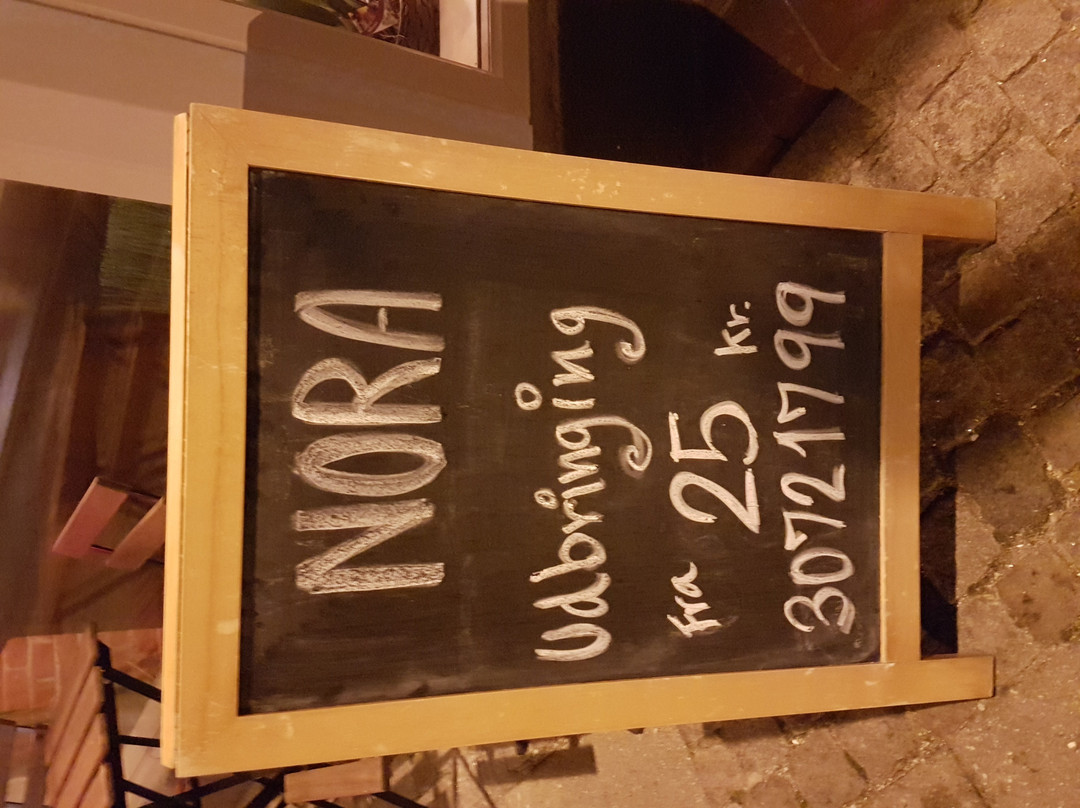 NORA
Udbringing
Fra 25 kr.
30721799